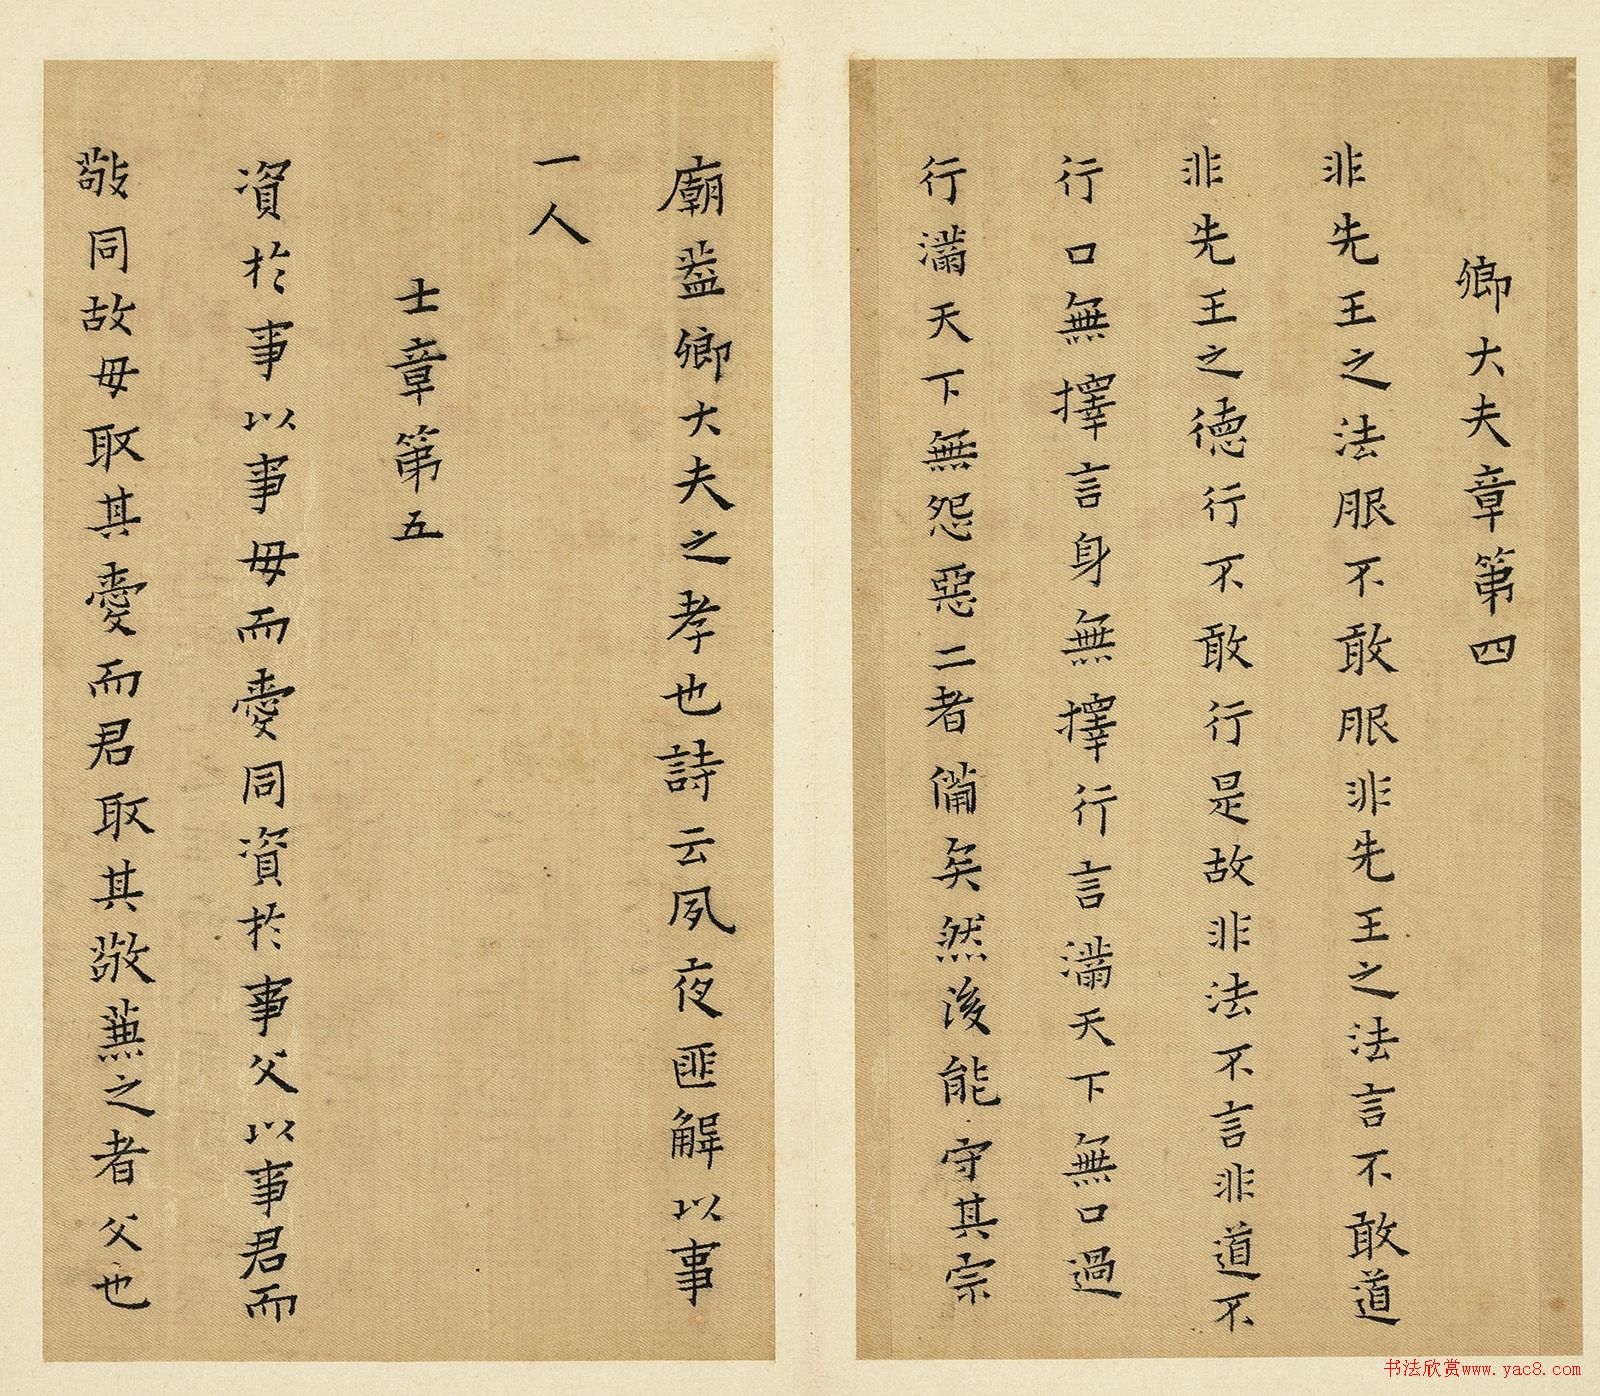 卿大夫章第四
非先王之法服不敢服非先王之法言不敢道
非先王之德行不敢行是故非法不言非道不
行口無擇言身無擇行言滿天下無口過
行滿天下無怨惡二者備矣然後能守其宗
廟蓋卿大夫之孝也詩云夙夜匪解以事
一人
士章第五
資於事以事母而愛同資於事父以事君而
敬同故母取其愛而君取其敬兼之者父也
书法欣赏www.yac8.com